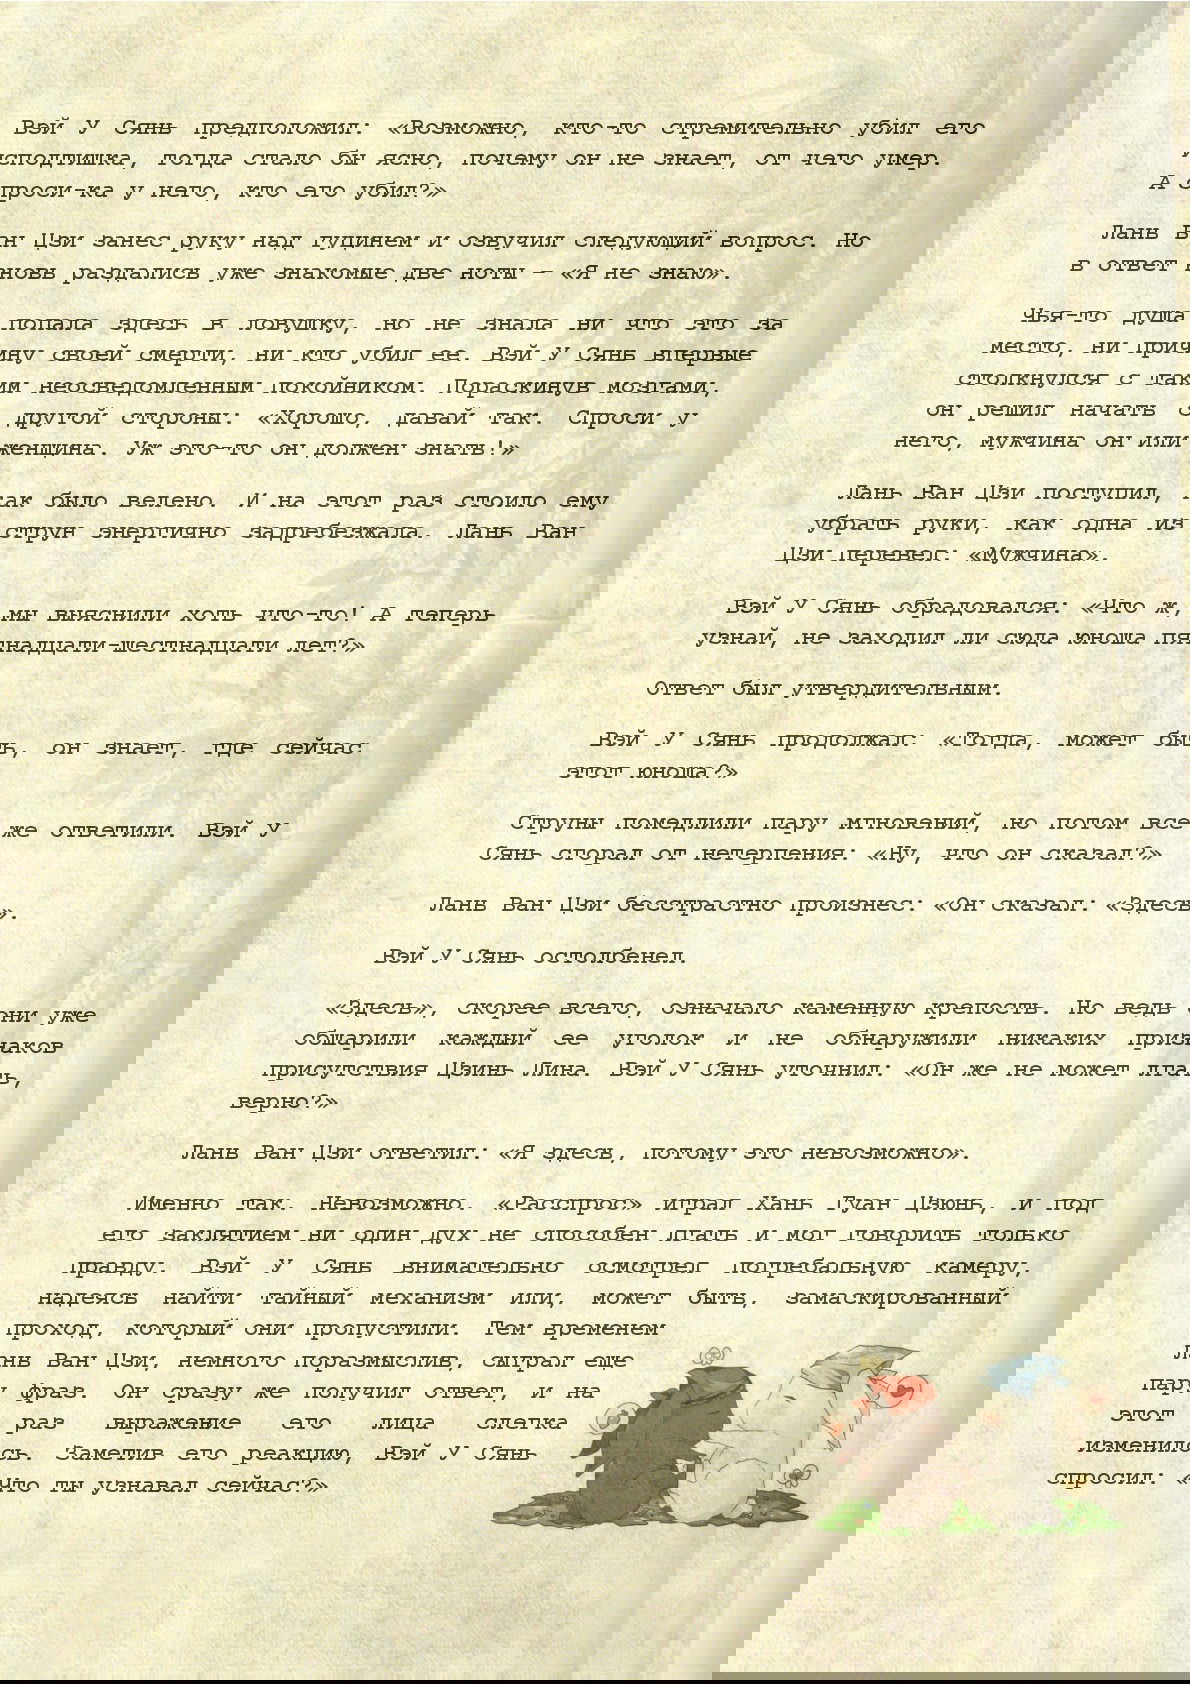 Вэй У Сянь предположил: «Возможно, кто-то стремительно убил его
исподтишка, тогда стало бы ясно, почему он не знает, от чего умер.
А спроси-ка у него, кто его убил?»
Лань Ван Цзи занес руку над гуцинем и озвучил следующий вопрос. Но
в ответ вновь раздались уже знакомые две ноты — «Я не знаю».
Чья-то душа попала здесь в ловушку, но не знала ни что это за
место, ни причину своей смерти, ни кто убил ее. Вэй У Сянь впервые
столкнулся с таким неосведомленным покойником. Пораскинув мозгами,
он решил начать с другой стороны: «Хорошо, давай так. Спроси у
него, мужчина он или женщина. Уж это-то он должен знать!»
Лань Ван Цзи поступил, как было велено. И на этот раз стоило ему
убрать руки, как одна из струн энергично задребезжала. Лань Ван
Цзи перевел: «Мужчина».
Вэй У Сянь обрадовался: «Что ж, мы выяснили хоть что-то! А теперь
узнай, не заходил ли сюда юноша пятнадцати-шестнадцати лет?»
Ответ был утвердительным.
Вэй У Сянь продолжал: «Тогда, может быть, он знает, где сейчас
этот юноша?»
Струны помедлили пару мгновений, но потом все же ответили. Вэй У
Сянь сгорал от нетерпения: «Ну, что он сказал?»
Лань Ван Цзи бесстрастно произнес: «Он сказал: «Здесь».
Вэй У Сянь остолбенел.
«Здесь», скорее всего, означало каменную крепость. Но ведь они уже
обшарили каждый ее уголок и не обнаружили никаких признаков
присутствия Цзинь Лина. Вэй У Сянь уточнил: «Он же не может лгать,
верно?»
Лань Ван Цзи ответил: «Я здесь, потому это невозможно».
Именно так. Невозможно. «Расспрос» играл Хань Гуан Цзюнь, и под
его заклятием ни один дух не способен лгать и мог говорить только
правду. Вэй У Сянь внимательно осмотрел погребальную камеру,
надеясь найти тайный механизм или, может быть, замаскированный
проход, который они пропустили. Тем временем
Лань Ван Цзи, немного поразмыслив, сыграл еще
пару фраз. Он сразу же получил ответ, и на
этот раз выражение его лица слегка
изменилось. Заметив его реакцию, Вэй У Сянь
спросил: «Что ты узнавал сейчас?»